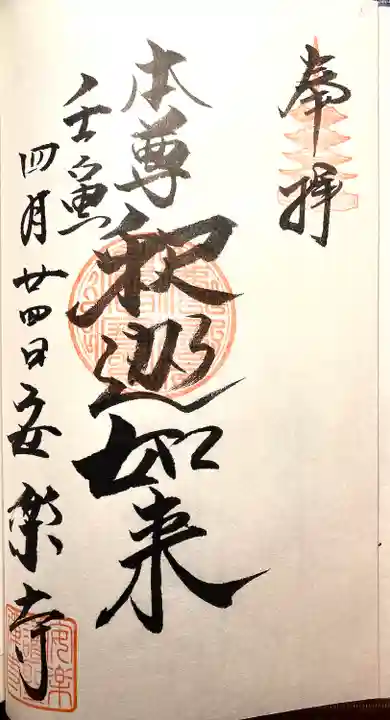 奉拝
本尊
釈迦如来
壬寅
四月廿四日安楽寺